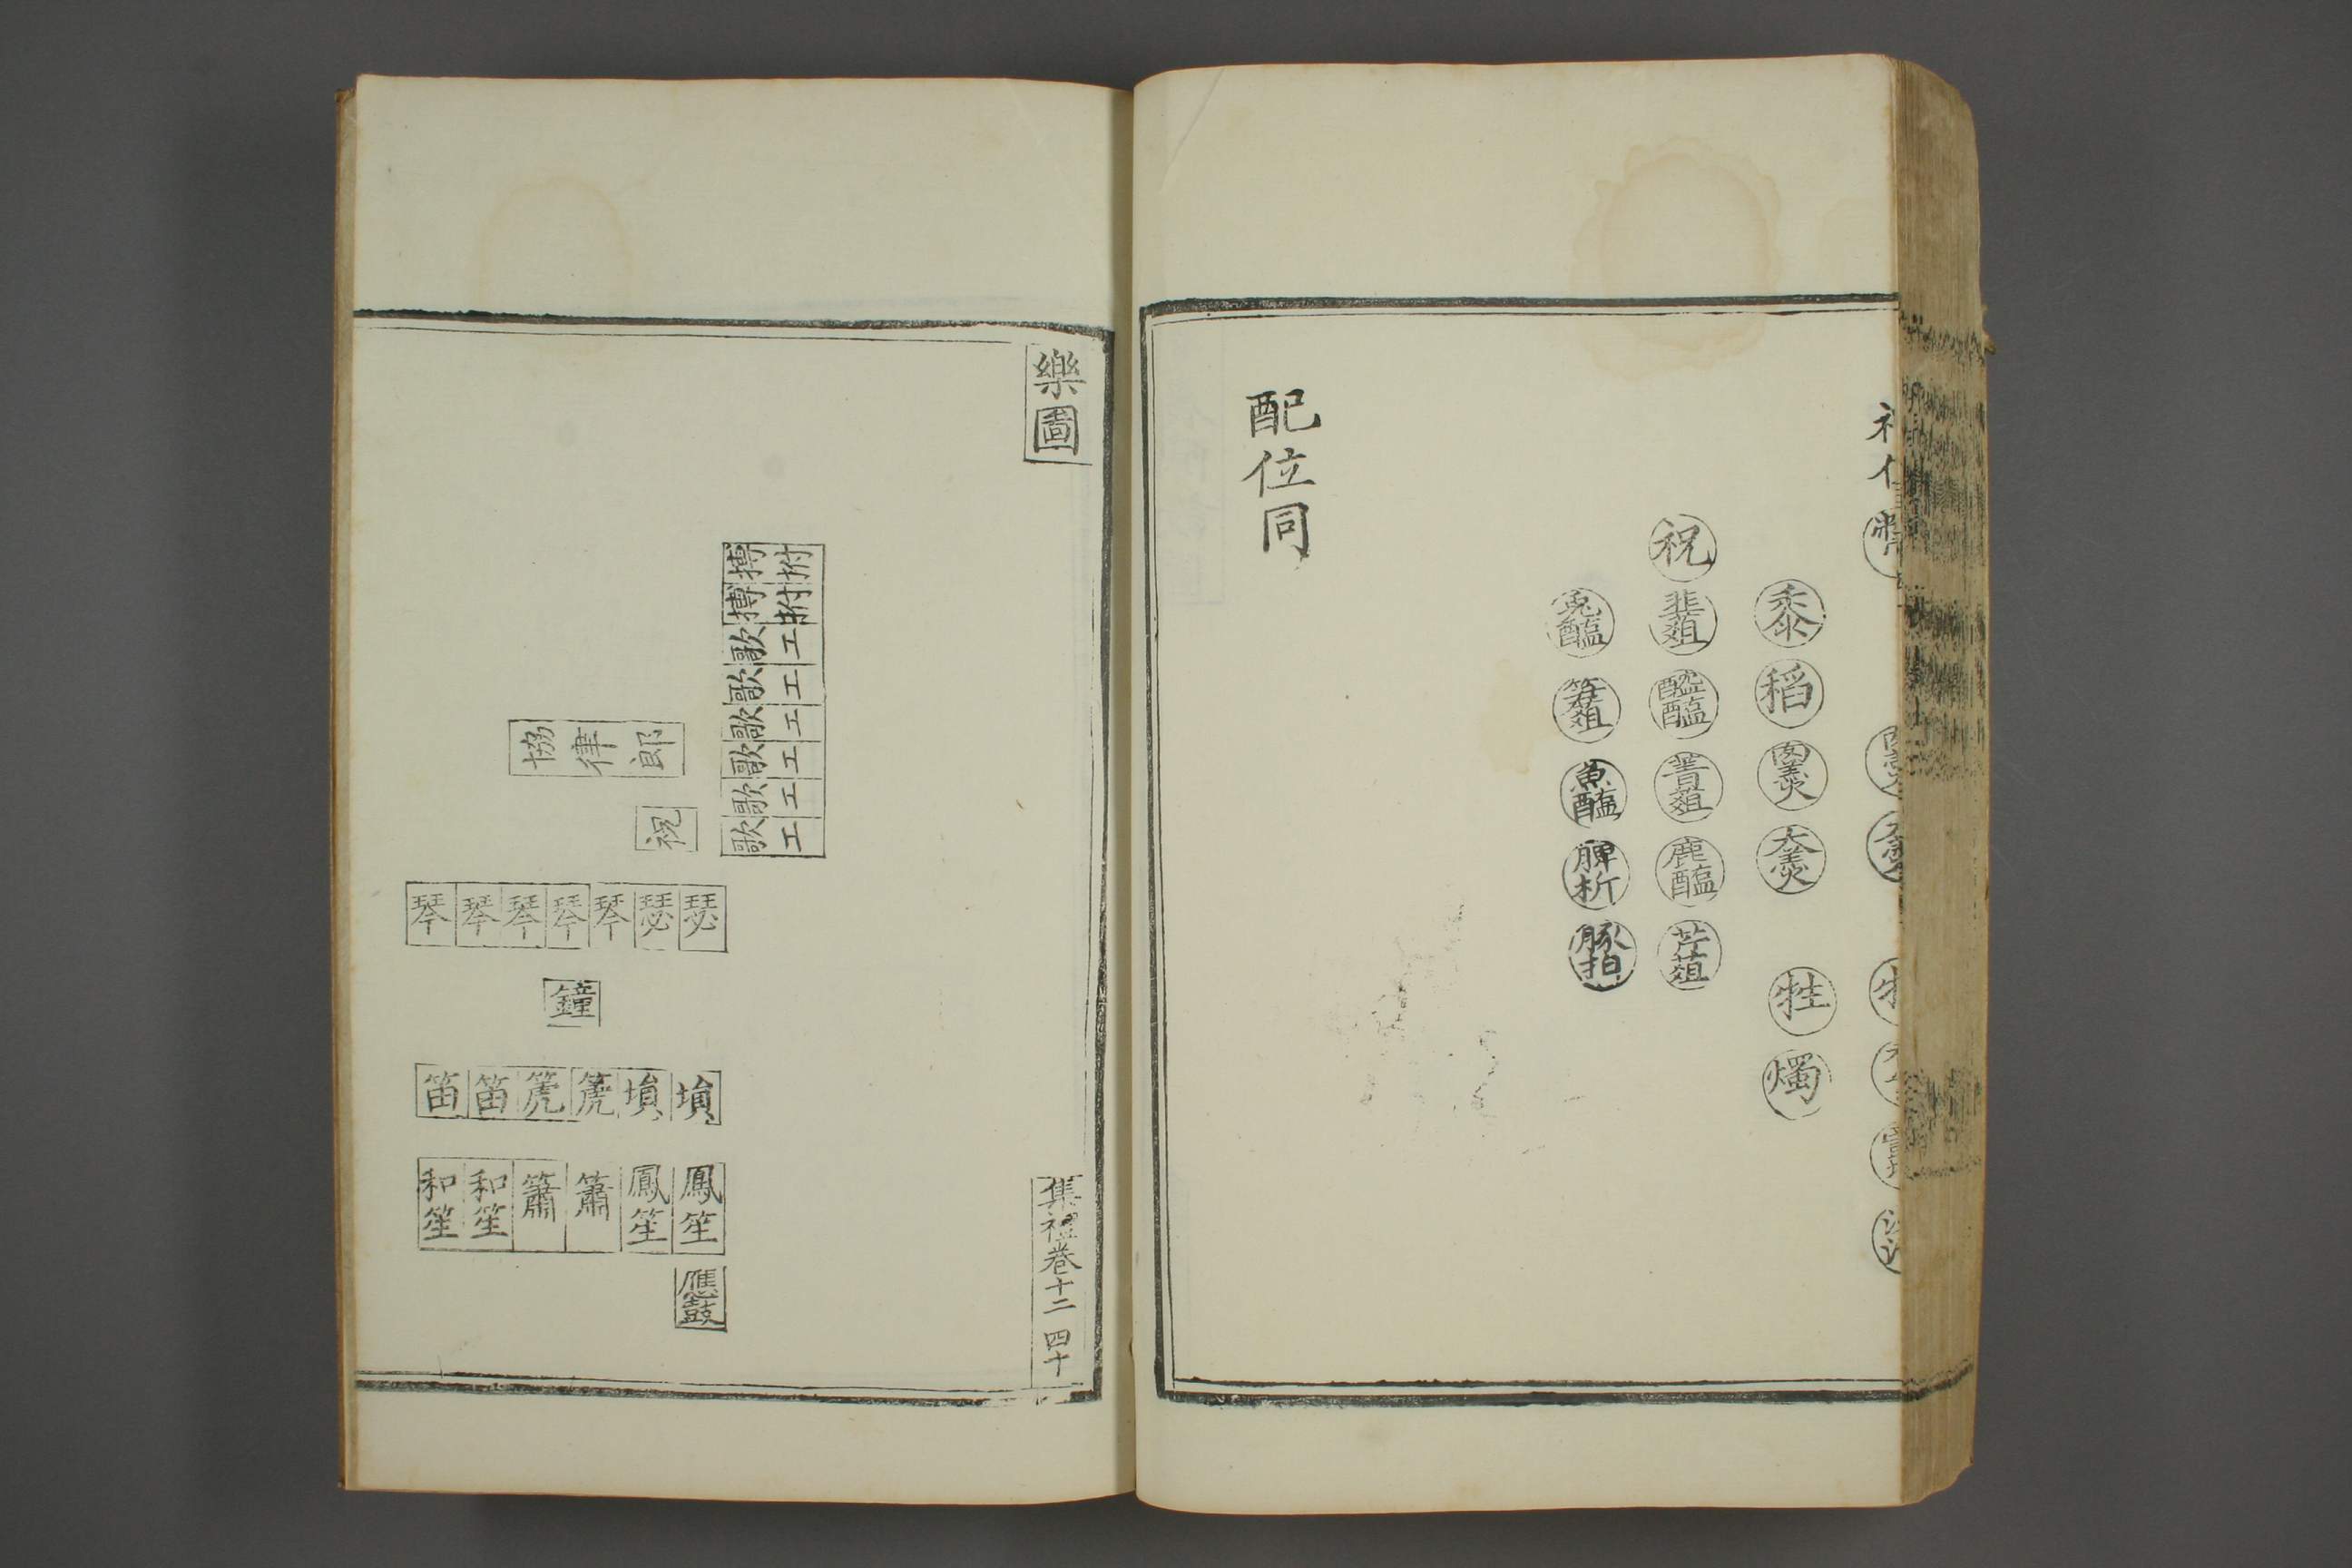 黍
稻
肉羹
太羹
牲
燭
祝
韭菹
醓醢
菁菹
鹿醢
芹菹
兎醢
筍菹
魚醢
脾析
豚拍
配位同
樂圖
搏拊
搏拊
歌工
歌工
歌工
歌工
歌工
歌工
協律郎
祝
琴 琴 琴 琴 琴 瑟 瑟
鐘
笛 笛 箎 箎 塤 塤
和笙 和笙 簫 簫 鳳笙 鳳笙
應鼓
集禮卷十二 四十